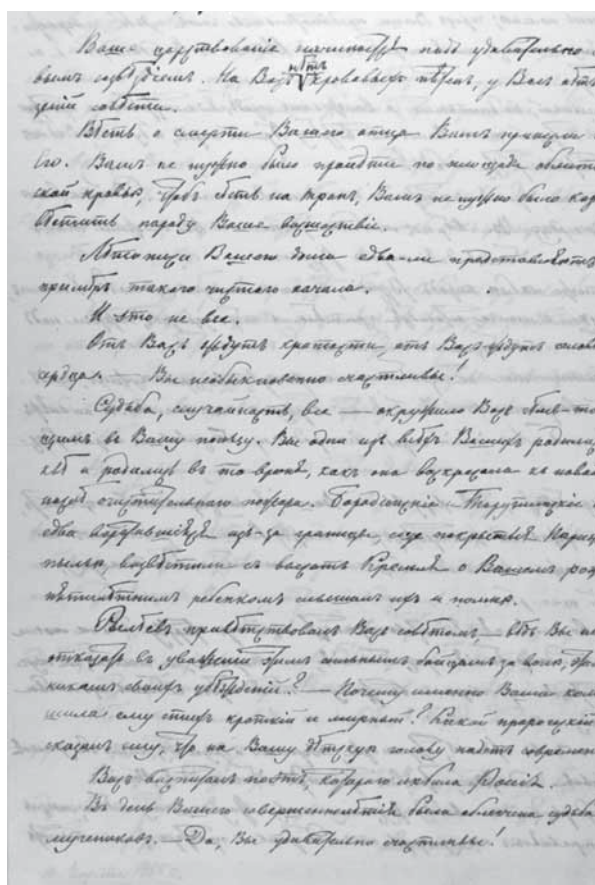 Ваше царствованіе начинается подъ удивительно
вымъ созвѣздіемъ. На Васъ нѣтъ кровавыхъ пятенъ, у Васъ нѣтъ
зеній совѣсти.
Вѣсть о смерти Вашего отца Вамъ принесли
Его. Вамъ не нужно было пройдти по площади облитой
ской кровью, чтобъ сѣсть на тронъ, Вамъ не нужно было каз
вѣстить народу Ваше восшествіе.
Лѣтописи Вашего дома едва-ли представляютъ
примѣръ такого чистаго начала.
И это не все.
Отъ Васъ ждутъ кротости, отъ Васъ ждутъ челов
сердца. — Вы необыкновенно счастливы!
Судьба, случайность, все — окружило Васъ чѣмъ-то
щимъ въ Вашу пользу. Вы одни изъ всѣхъ Вашихъ родились
квѣ и родились въ то время, какъ она воскресала къ новой
послѣ очистительнаго пожара. Бородинскія Тарутинскія
едва воротившіеся изъ-за границы, еще покрытыя Париж
пылью, возвѣстили съ высотъ Кремля о Вашемъ рож
пятилѣтнимъ ребенкомъ слышалъ ихъ и помню.
Рылѣевъ привѣтствовалъ Васъ совѣтомъ, — вѣдь Вы не
отказать въ уваженіи этимъ сильнымъ бойцамъ за волю, эти
никамъ своихъ убѣжденій? — Почему именно Ваша колы
шила ему стихъ кроткій и мирный? Какой пророческій
сказалъ ему, что на Вашу дѣтскую голову падетъ современ
Васъ воспиталъ поэтъ, котораго любила Россія.
Въ день Вашего совершеннолѣтія была облегчена судьба
мучениковъ. — Да, Вы удивительно счастливы!